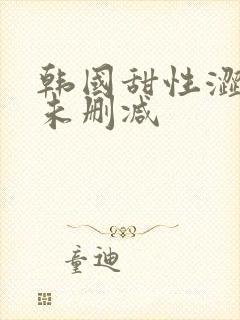 韩国甜性澀
未删减
童迪